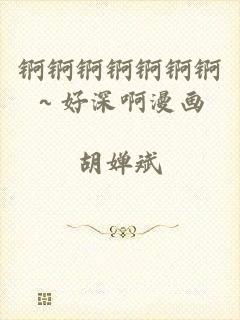 锕锕锕锕锕锕锕
~好深啊漫画
胡婵斌